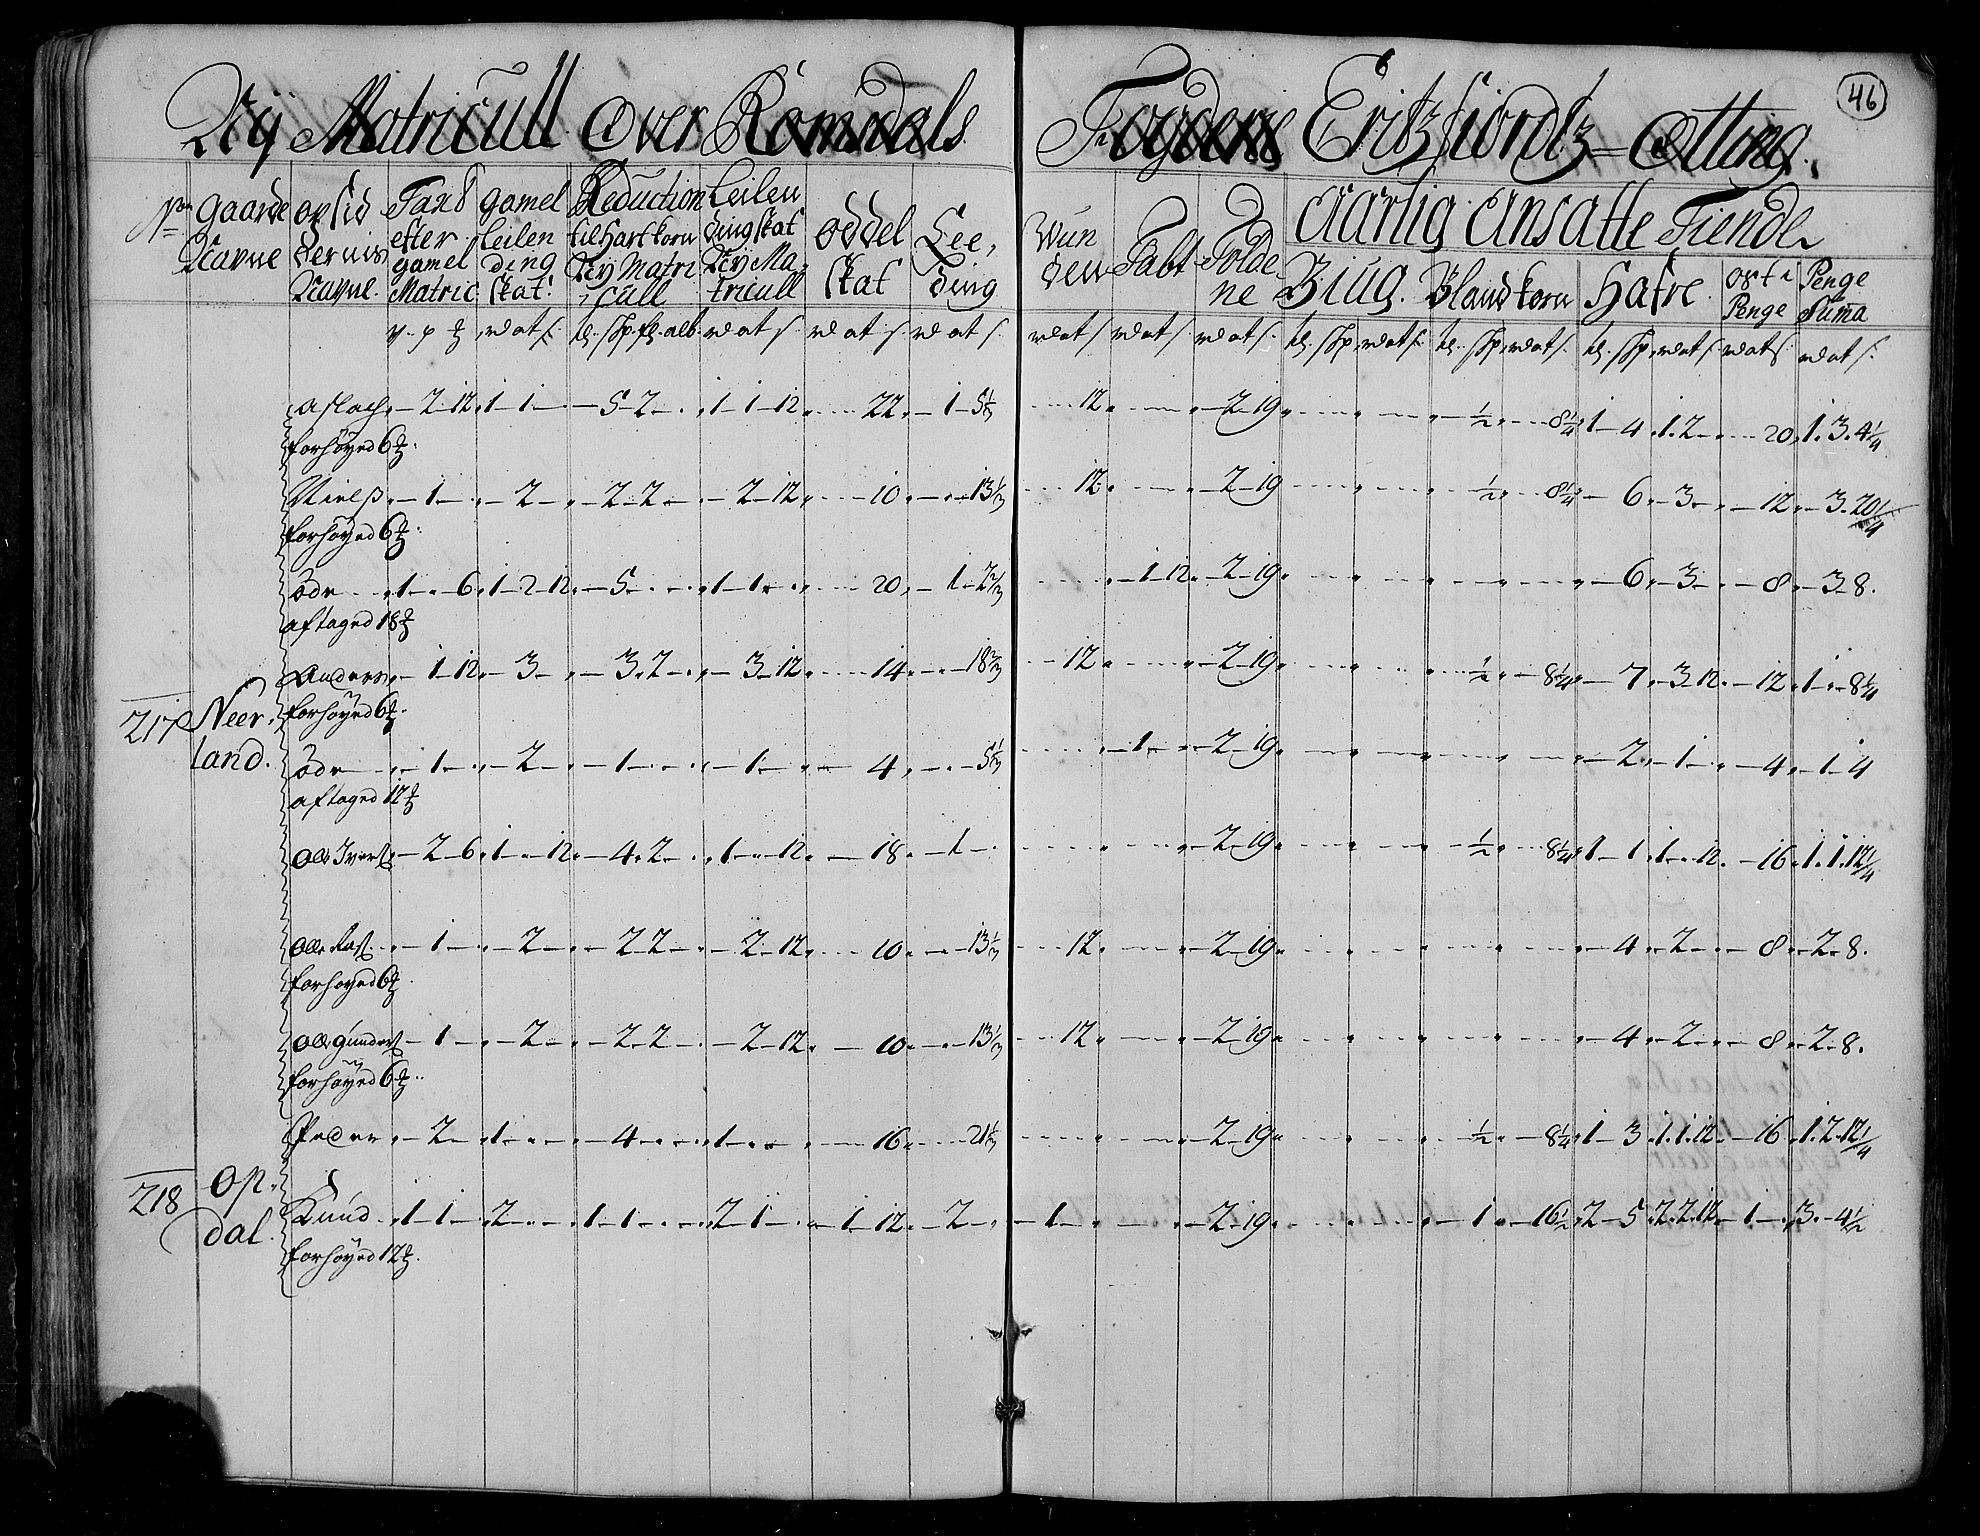 Nÿ Matricull over Romsdals Fogderie Eritzfiordtz Otting.
46
No
Gaarde Navne
opsid dernis Navne.
Taxt efter gamel Matric
gamel Leilending skat.
Reduction til Hartkorn Nÿ Matricull
Leilending skat Nÿ Matricull
oddel skat
Lee, ding
Wun den
Tabt
Solde ne
Aarlig Ansatte Tiende
Biug.
Blandkorn
Hafre.
oste Penge
Penge Suma
Aslach 2 12 1 1 5 2 1 1 12 22 1 5 1/3 12 2 19 1/2 8 1/4 1 4 1 2 20 1 3 4 1/4
forhøyed 6
Nielß 1 2 2 2 2 12 10 13 1/3 12 2 19 1/2 8 1/4 6 3 12 3 20 1/4
forhøyed 6
öde 1 6 1 2 12 5 1 1 20 1 2 2/3 1 12 2 19 6 3 8 3 8.
aftaged 18
Anders 1 12 3 3 2 3 12 14 18 2/3 12 2 19 1/2 8 1/4 7 3 12 12 1 8 1/4
forhøyed 6
217 Neer land.
öde 1 2 1 1 4 5 1/3 1 2 19 2 1 4 1 4
aftaged 12
Olle Iverß 2 6 1 12 4 2 1 12 18 1 2 19 1/2 8 1/4 1 1 1 12 16 1 1 12 1/4
Olle Raß 1 2 2 2 2 12 10 13 1/3 12 2 19 4 2 8 2 8.
forhøyed 6
Olle Gunderß 1 2 2 2 2 12 10 13 1/3 12 2 19 4 2 8 2 8.
forhøyed 6
Peder 2 1 4 1 16 21 1/3 2 19 1/2 8 1/4 1 3 1 1 12 16 1 2 12 1/4
218 Op dal.
Knud 1 1 2 1 1 2 1 1 12 2 1 2 19 1 16 1/2 2 5 2 2 12 1 3 4 1/2
forhøyed 12